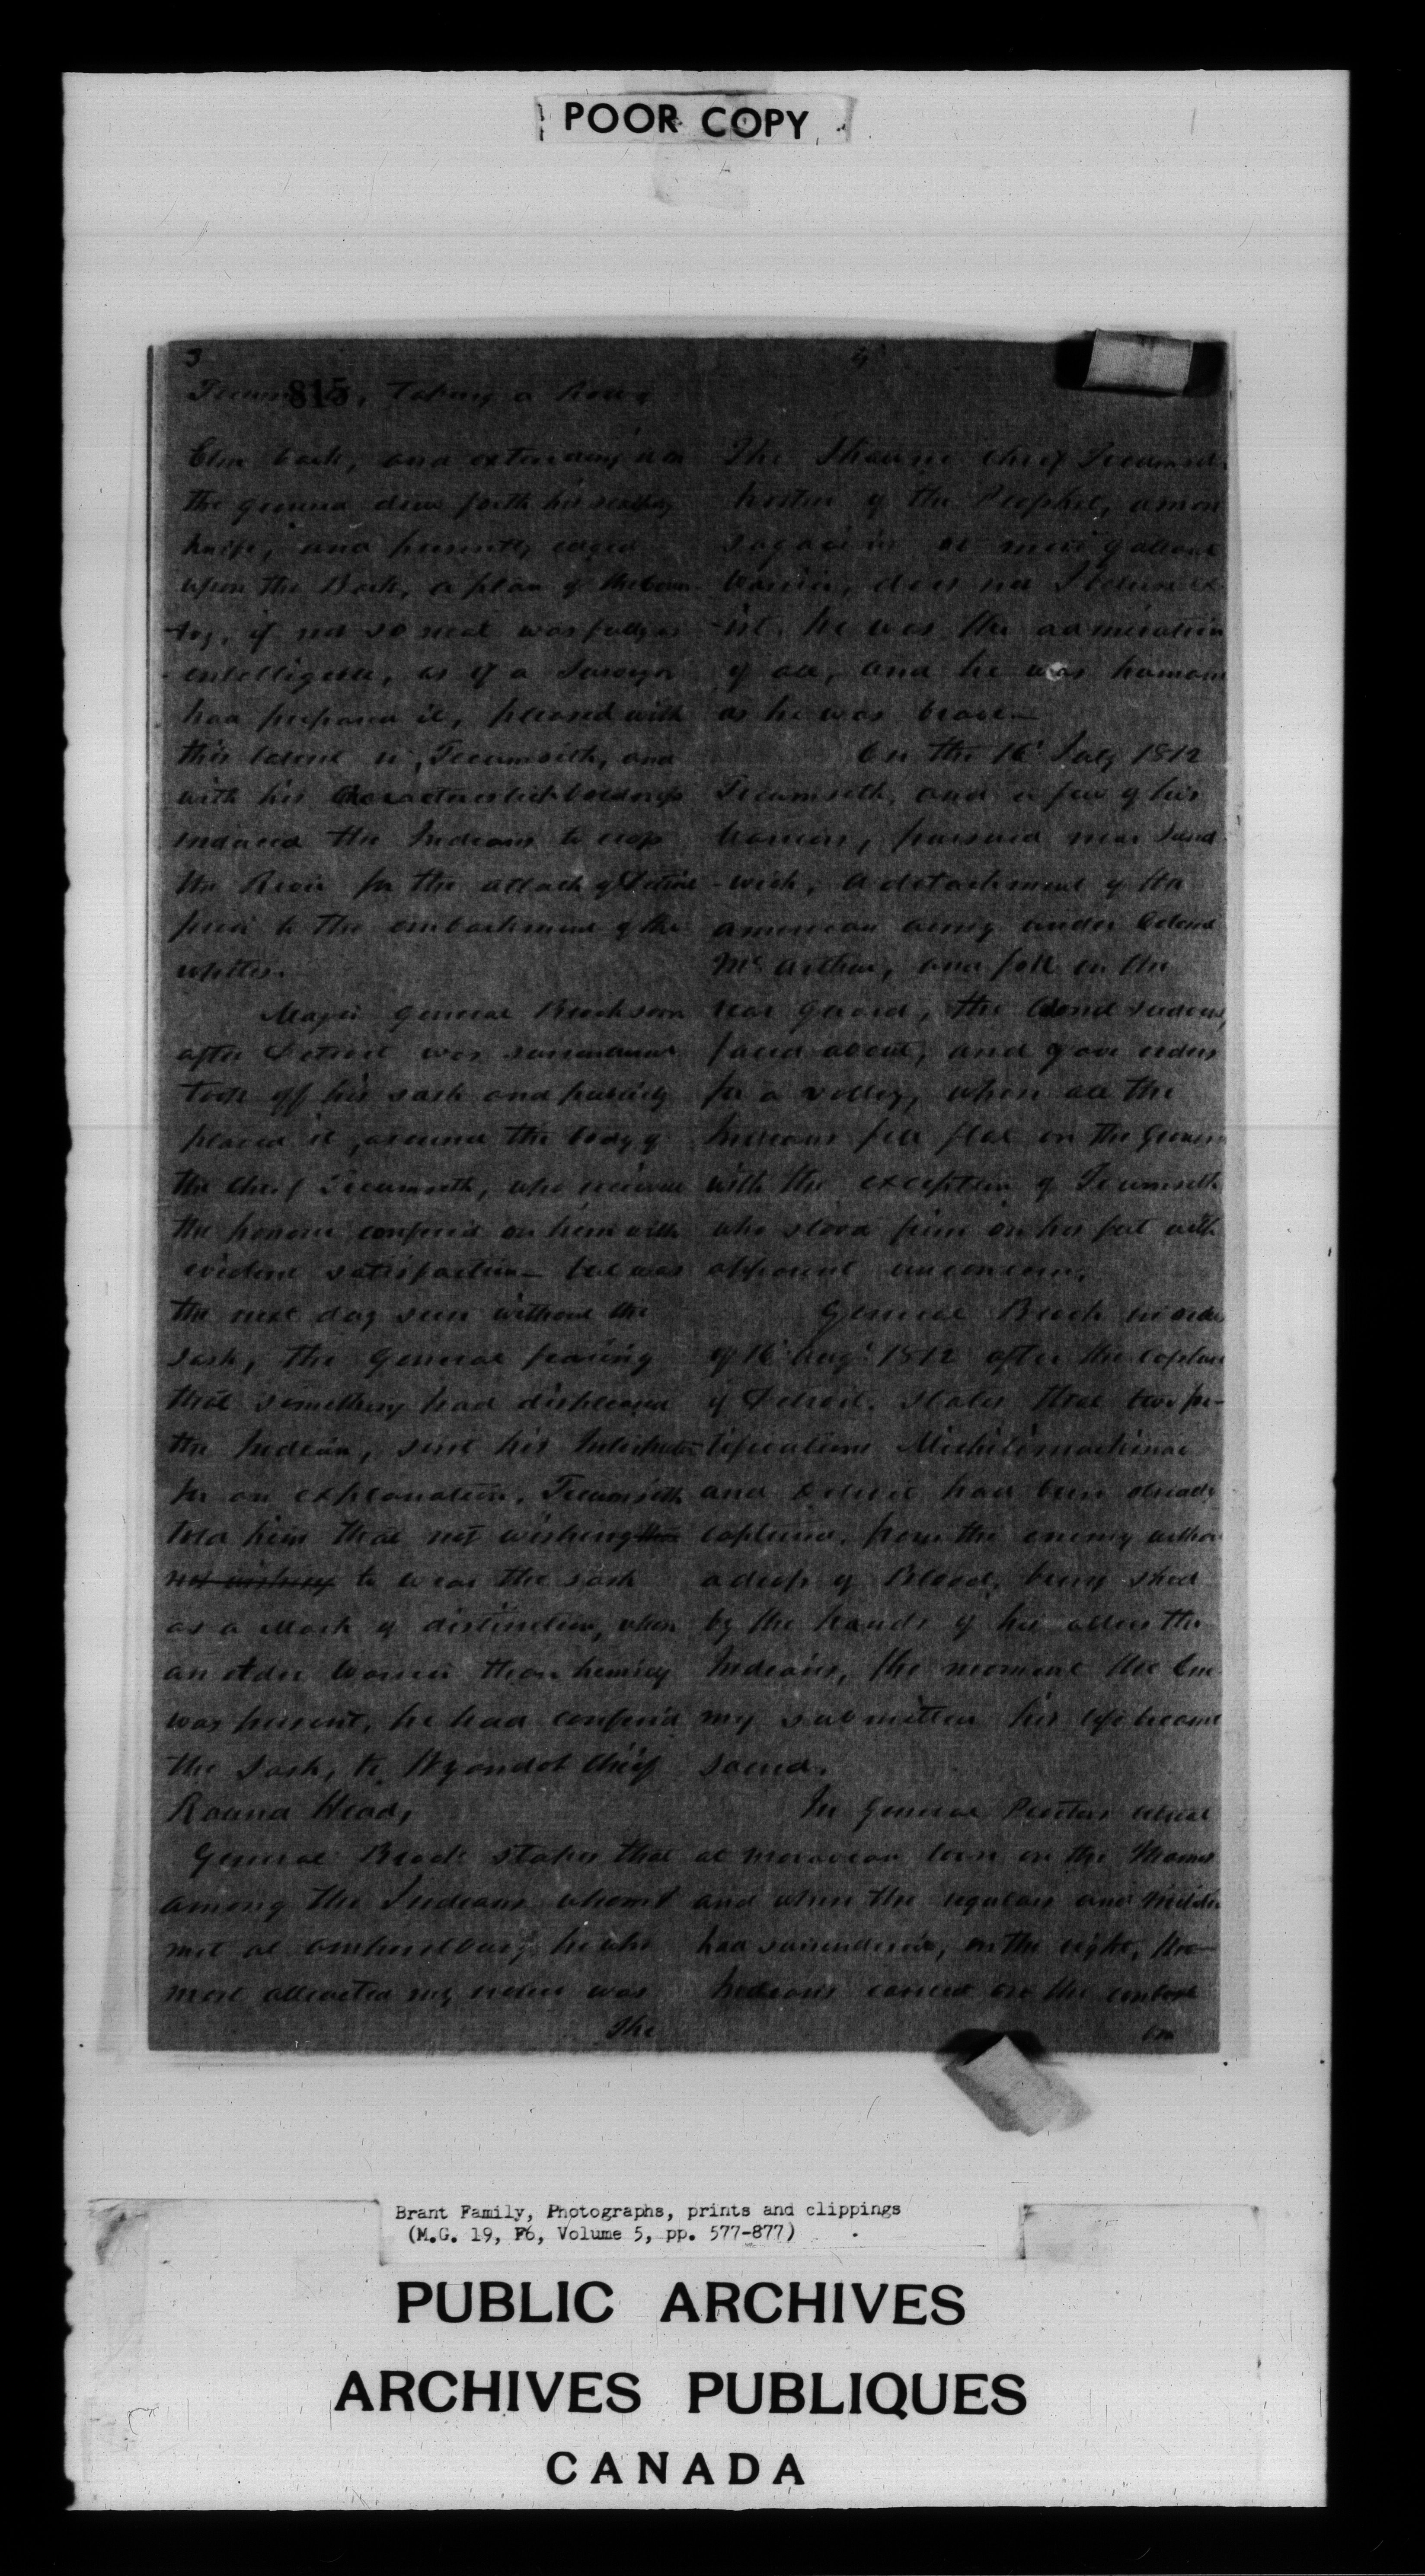 POOR COPY
3
815
Tecumseth, Taking a Roll of
Elm bark, and extending it on
the ground drew forth his scalping
knife, and presently edged
upon the Bark, a plan of the Coun-
-try, if not so neat was fully as
intelligible, as if a Surveyor
had prepared it, pleased with
this talent in Tecumseth, and
with his Characteristick boldness
induced the Indians to cross
the River for the attack of Detroit
prior to the embarkment of the
whites.
Major General Brock soon
after Detroit was surrendered
took off his sash and publicly
placed it, around the body of
the Chief Tecumseth, who received
the honour conferr'd on him with
evident satisfaction— but was
the next day seen without the
sash, the General fearing
that something had displeased
the Indian, sent his Interpreter
for an explanation. Tecumseth
told him that not wishing
not wishing to wear the sash
as a Mark of distinction, when
an older Warrior than himself
was present, he had conferr'd
the Sash, to Wyandot Chief
Round Head,
General Brock states that
among the Indians whom I
met at Amherstburg, he who
most attracted my notice was
The
4
The Shawnee Chief Tecumseth
brother of the Prophet, a more
sagacious or more gallant
Warrior, does not I believe ex-
-ist. he was the admiration
of all, and he was humane
as he was brave—
On the 16 July 1812
Tecumseth, and a few of his
Warriors, pursued near Sand-
-wich, a detachment of the
american army under Colonel
McArthur, and fell on the
rear guard, the Colonel suddenly
faced about, and gave orders
for a volley, when all the
Indians fell flat on the Ground
with the exception of Tecumseth
who stood firm on his feet with
apparent unconcern.
General Brock in orders
of 16 Augt 1812 after the capture
of Detroit. states that two for-
tifications Michilimackinac
and Detroit had been already
captured, from the enemy without
a drop of Blood, being shed
by the hands of his allies the
Indians, the moment the Ene-
my submitted his life became
sacred.
In General Proctors retreat
at moravian town on the Thames
and when the regulars and Militia
had surrendered, on the right, the
Indians carried on the contest
on
Brant Family, Photographs, prints and clippings
(M.G. 19, F6, Volume 5, pp. 577-877)
PUBLIC ARCHIVES
ARCHIVES PUBLIQUES
CANADA